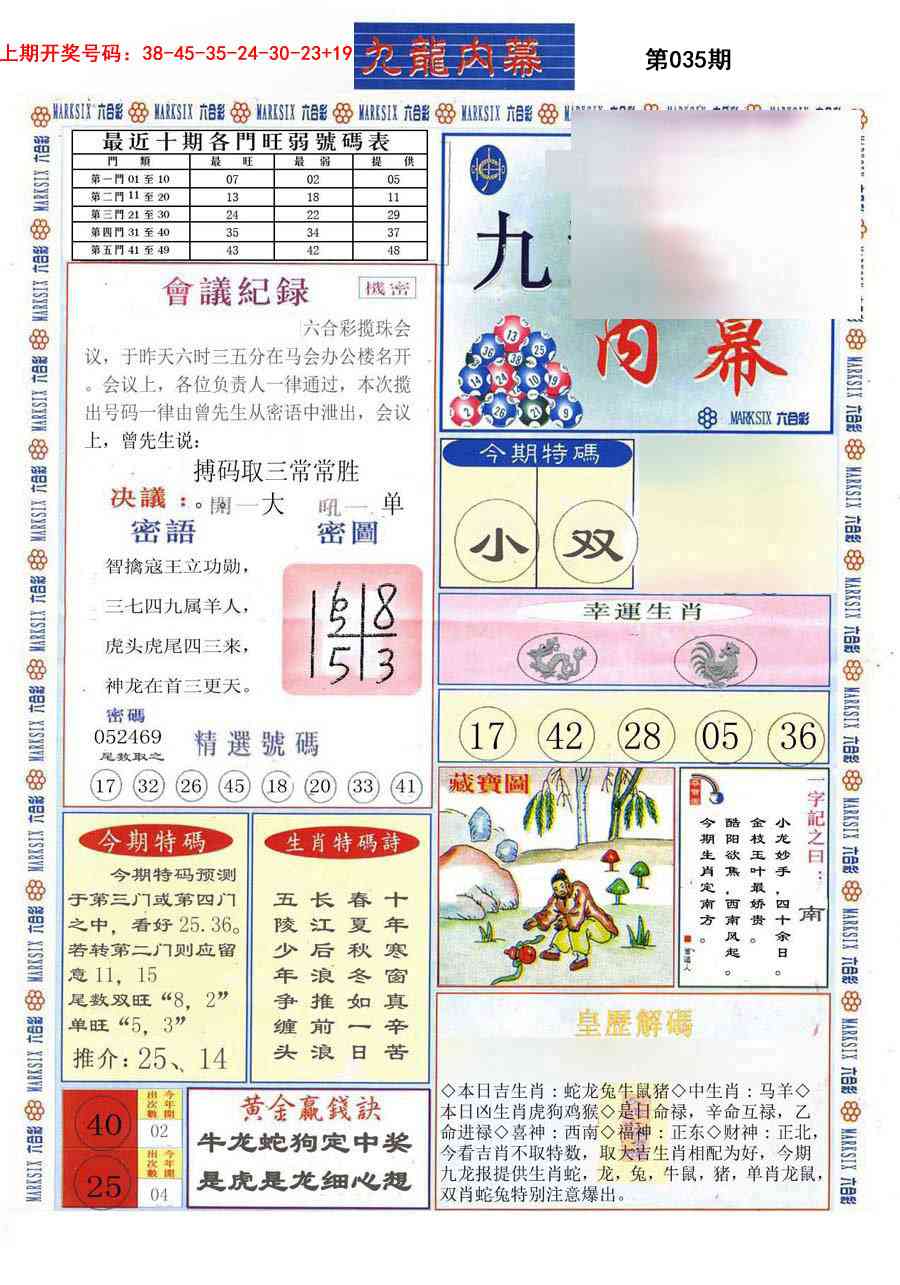 上期开奖号码：38-45-35-24-30-23+19
九龍内幕
第035期
MARKSIX 六合彩
最近十期各門旺弱號碼表
門 類 最 旺 最 弱 提 供
第一門 01 至 10 07 02 05
第二門 11 至 20 13 18 11
第三門 21 至 30 24 22 29
第四門 31 至 40 35 34 37
第五門 41 至 49 43 42 48
九
内幕
13
36 38 25
14 24 10 19
2 26 21 9
MARKSIX 六合彩
會議紀録
機密
六合彩揽珠会
议，于昨天六时三五分在马会办公楼名开
。会议上，各位负责人一律通过，本次揽
出号码一律由曾先生从密语中泄出，会议
上，曾先生说：
搏码取三常常胜
决議：。開一大 吼一 单
密語
密圖
智擒寇王立功勋，
三七四九属羊人，
虎头虎尾四三来，
神龙在首三更天。
6 8
5 3
密碼
052469
尾数取之
精選號碼
17 32 26 45 18 20 33 41
今期特碼
小 双
幸運生肖
17 42 28 05 36
藏寶圖
一字記之曰：
南
小龙妙手，四十余日。
金枝玉叶最娇贵。
酷阳欲焦，西南风起。
今期生肖定南方。
今期特碼
今期特码预测
于第三门或第四门
之中，看好25.36。
若转第二门则应留
意11，15
尾数双旺“8，2”
单旺“5，3”
推介：25、14
生肖特碼詩
十年寒窗真辛苦
春夏秋冬如一日
长江后浪推前浪
五陵少年争缠头
皇歷解碼
◇本日吉生肖：蛇龙兔牛鼠猪◇中生肖：马羊◇
本日凶生肖虎狗鸡猴◇是日命禄，辛命互禄，乙
命进禄◇喜神：西南◇福神：正东◇财神：正北，
今看吉肖不取特数，取大吉生肖相配为好，今期
九龙报提供生肖蛇，龙，兔，牛鼠，猪，单肖龙鼠，
双肖蛇兔特别注意爆出。
40
今年開出次數
02
25
今年開出次數
04
黄金赢錢訣
牛龙蛇狗定中奖
是虎是龙细心想